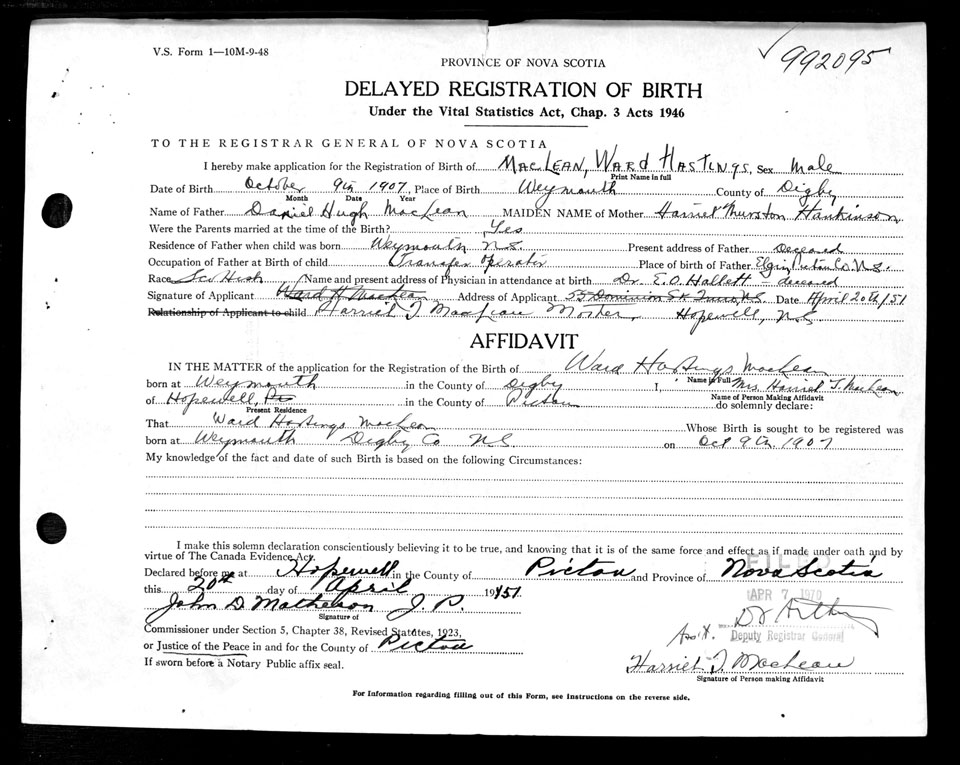 V.S. Form 1—10M-9-48
992095
PROVINCE OF NOVA SCOTIA
DELAYED REGISTRATION OF BIRTH
Under the Vital Statistics Act, Chap. 3 Acts 1946
TO THE REGISTRAR GENERAL OF NOVA SCOTIA
I hereby make application for the Registration of Birth of MacLean, Ward Hastings, Sex Male
Print Name in full
Date of Birth October 9th 1907, Place of Birth Weymouth County of Digby
Month Date Year
Name of Father Daniel Hugh MacLean MAIDEN NAME of Mother Harriet Hankinson
Were the Parents married at the time of the Birth? Yes
Residence of Father when child was born Weymouth N.S. Present address of Father Deceased
Occupation of Father at Birth of child Transfer Operator Place of birth of Father Elgin Pictou Co. N.S.
Race Name and present address of Physician in attendance at birth Dr. E.O. Hallett - deceased
Signature of Applicant Ward H MacLean Address of Applicant 55 Dominion St Truro, N.S. Date April 20th/51
Relationship of Applicant to child Harriet T MacLean Mother, Hopewell, N.S.
AFFIDAVIT
IN THE MATTER of the application for the Registration of Birth of Ward Hastings MacLean
Name in Full
born at Weymouth in the County of Digby I, Mrs Harriet T. MacLean
Name of Person Making Affidavit
of Hopewell, in the County of Pictou do solemnly declare:
Present Residence
That Ward Hastings MacLean Whose Birth is sought to be registered was
born at Weymouth Digby Co N.S. on Oct 9th 1907
My knowledge of the fact and date of such Birth is based on the following Circumstances:
I make this solemn declaration conscientiously believing it to be true, and knowing that it is of the same force and effect as if made under oath and by
virtue of The Canada Evidence Act.
FILED
Declared before me at Hopewell in the County of Pictou and Province of Nova Scotia
this 20th day of April 1951.
APR 7 1970
John D. Matheson J.P.
Signature of
Ass't. Deputy Registrar General
Commissioner under Section 5, Chapter 38, Revised Statutes, 1923,
or Justice of the Peace in and for the County of Pictou
If sworn before a Notary Public affix seal.
Harriet T. MacLean
Signature of Person making Affidavit
For Information regarding filling out of this Form, see Instructions on the reverse side.